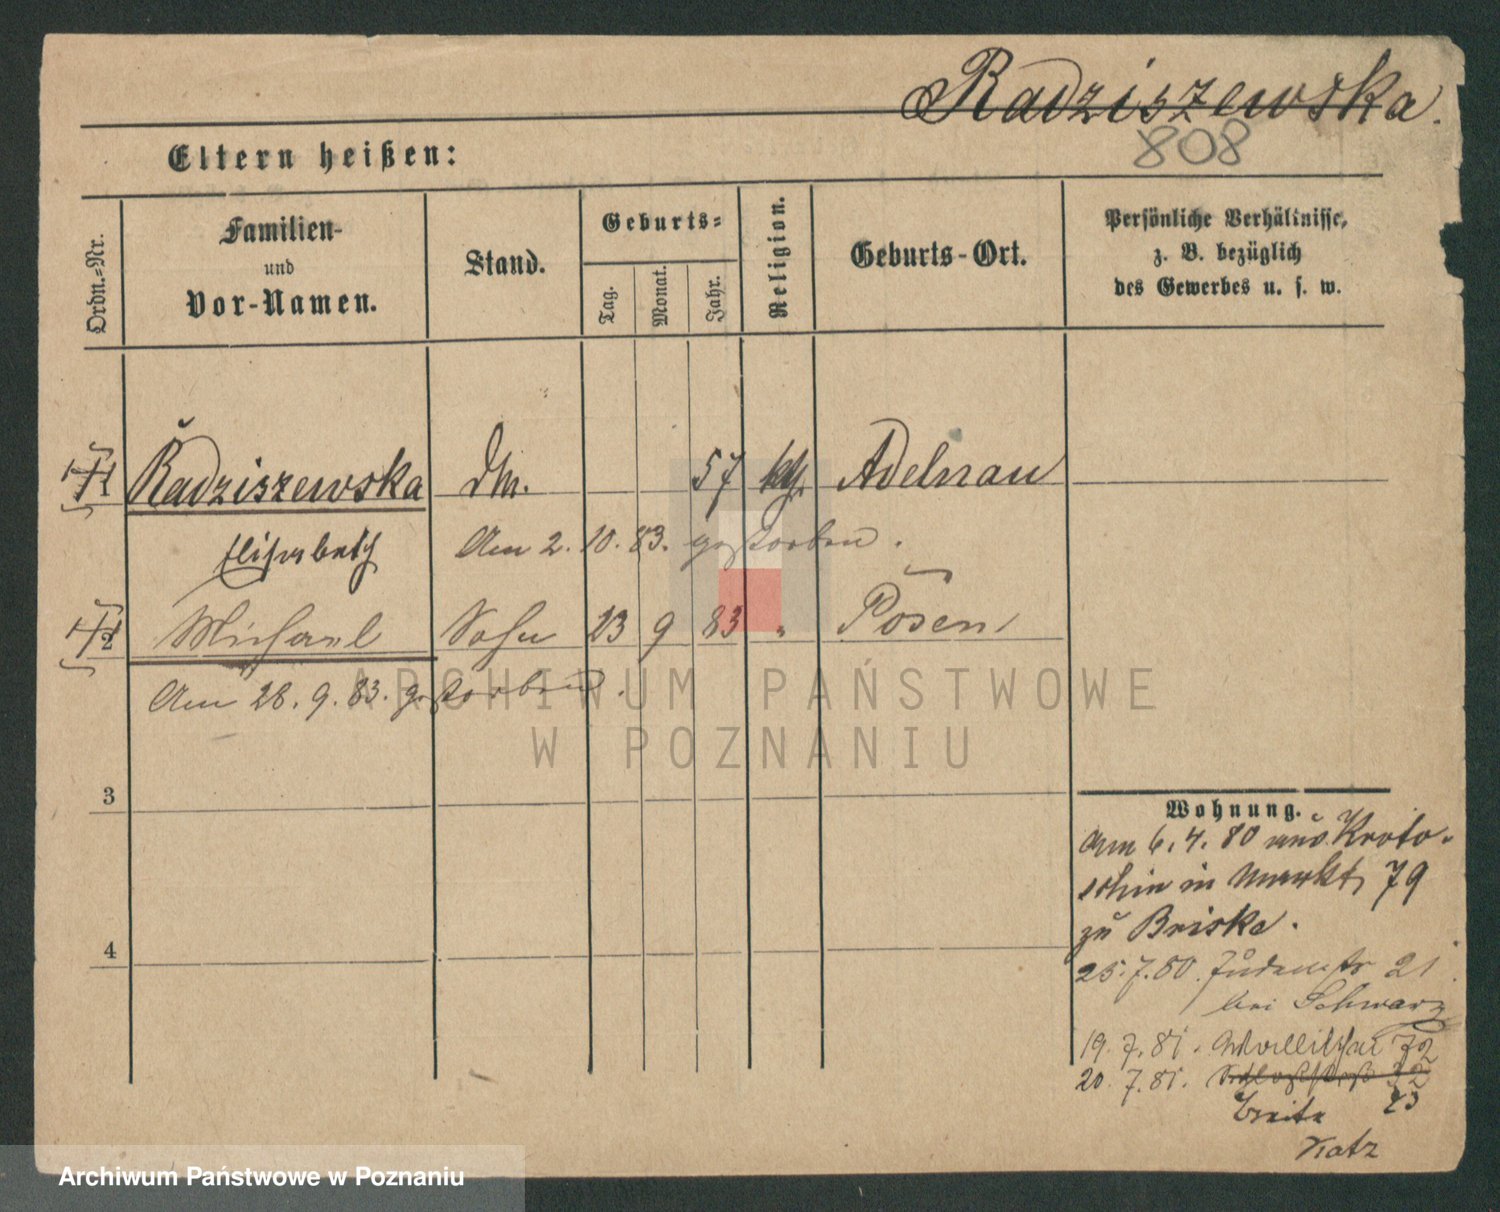 Radziszewska.
808
Eltern heißen:
Ordn.-Nr.
Familien-
und
Vor-Namen.
Stand.
Geburts-
Tag.
Monat.
Jahr.
Religion.
Geburts-Ort.
Persönliche Verhältnisse,
z. B. bezüglich
des Gewerbes u. s. w.
1 Radziszewska 57 kth. Adelnau
Elisabeth Am 2. 10. 83. gestorben.
2 Michael Sohn 23 9 83 " Posen
Am 28. 9. 83. gestorben.
ARCHIWUM PAŃSTWOWE
W POZNANIU
3
4
Wohnung.
Am 6. 4. 80 aus Kroto-
schin in Markt 79
zu Briske.
25. 7. 80. Judenstr 21
bei Schwarz
19. 7. 81. Wallischei 72
20. 7. 81.
Breite 23
Katz
Archiwum Państwowe w Poznaniu